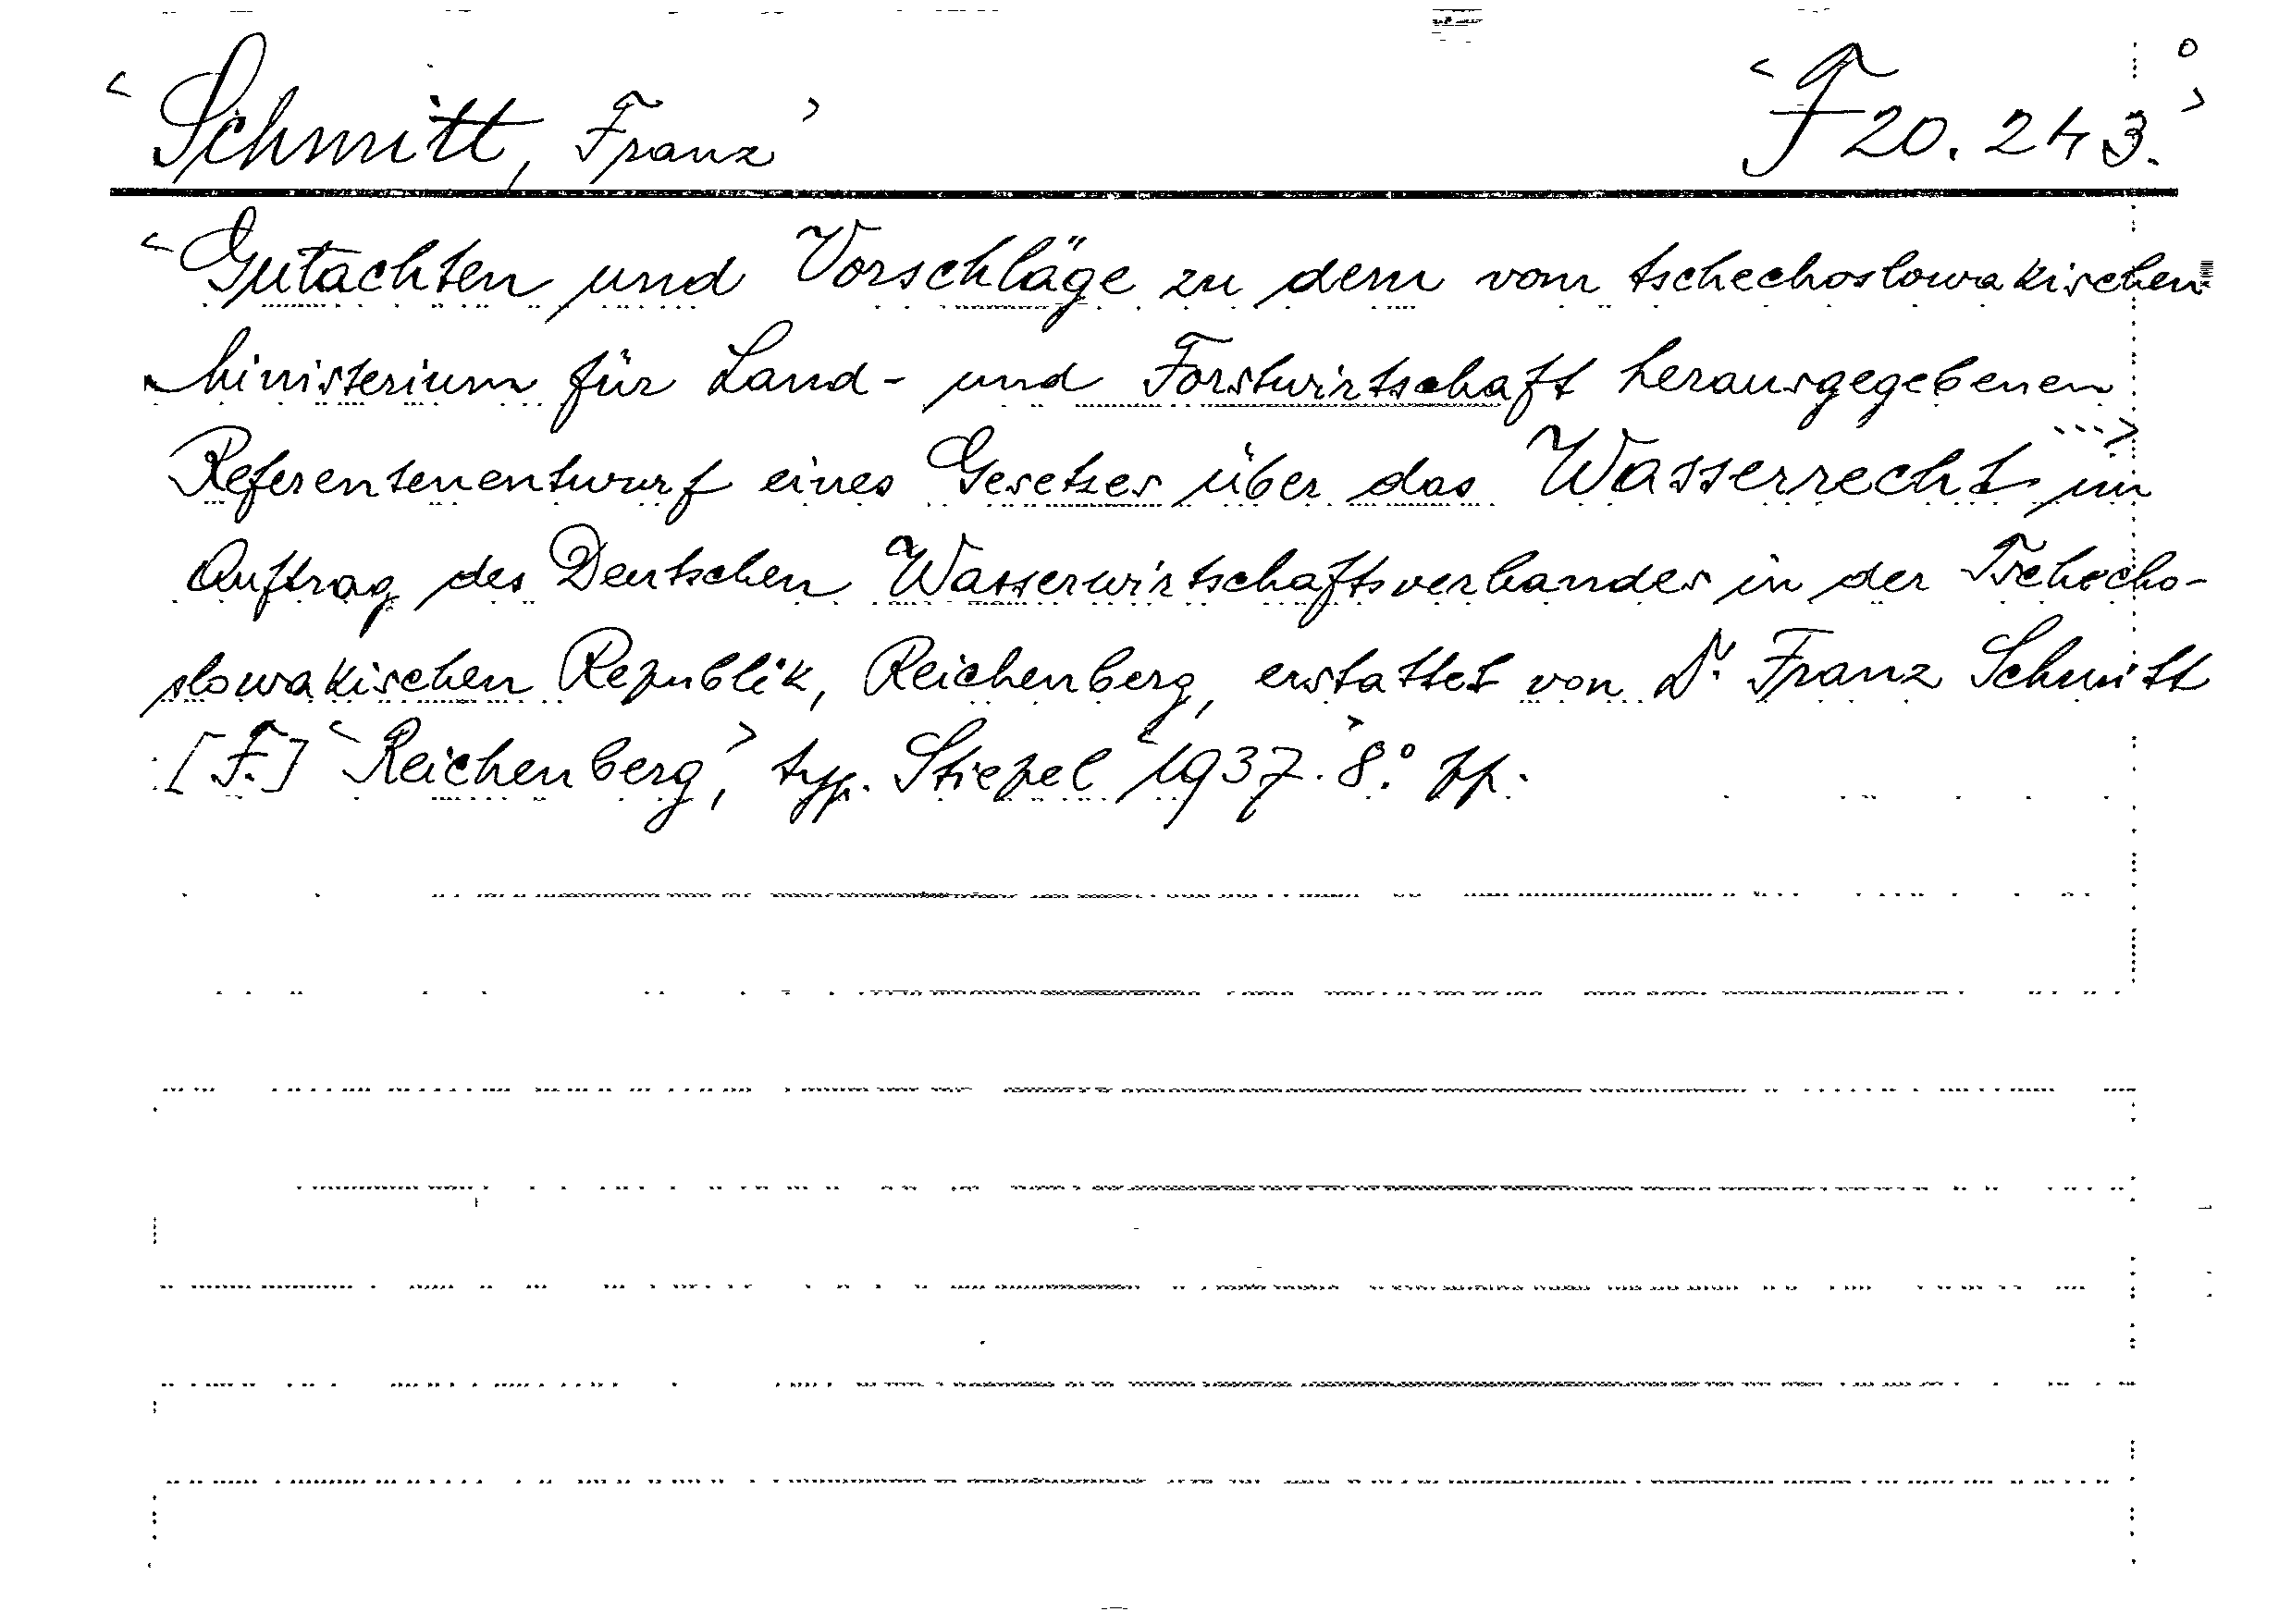 <Schmitt, Franz> <F 20.243.>
<Gutachten und Vorschläge zu dem vom tschechoslowakischen
Ministerium für Land- und Forstwirtschaft herausgegebenen
Referentenentwurf eines Gesetzes über das Wasserrecht ...> im
Auftrag des Deutschen Wasserwirtschaftsverbandes in der Tschecho-
slowakischen Republik, Reichenberg, erstattet von Dr. Franz Schmitt
[F.] <Reichenberg,> typ. Stiepel <1937.> 8.° pp.